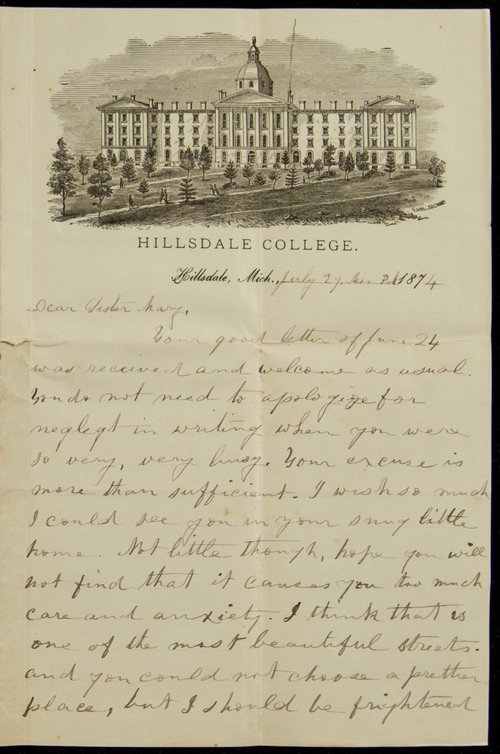 HILLSDALE COLLEGE.
Hillsdale, Mich., July 27 1874
Dear Sister Mary,
Your good letter of June 24
was received and welcome as usual.
You do not need to apologize for
neglegt in writing when you were
so very, very busy. Your excuse is
more than sufficient. I wish so much
I could see you in your snug little
home. Not little though, hope you will
not find that it causes you too much
care and anxiety. I think that is
one of the most beautiful streets.
and you could not choose a prettier
place, but I should be frightened